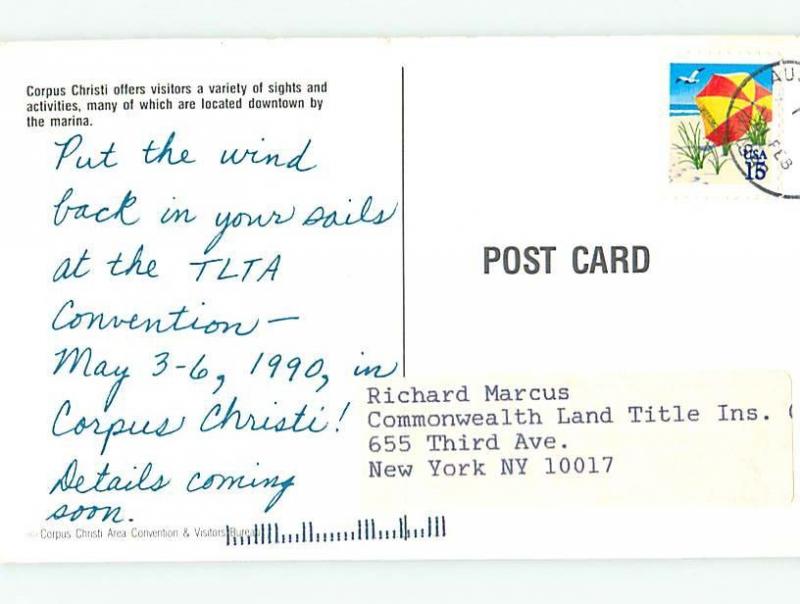 Corpus Christi offers visitors a variety of sights and
activities, many of which are located downtown by
the marina.
Put the wind
back in your sails
at the TLTA
Convention —
May 3-6, 1990, in
Corpus Christi!
Details coming
soon.
Corpus Christi Area Convention & Visitors Bureau
USA
15
FEB
POST CARD
Richard Marcus
Commonwealth Land Title Ins.
655 Third Ave.
New York NY 10017